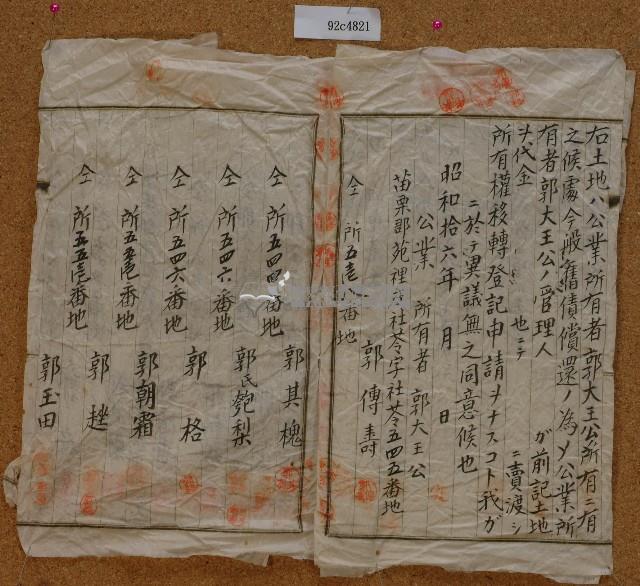 92c4821
右土地ハ公業所有者郭大王公所有ニ有
之候處今般舊債償還ノ為メ公業所
有者郭大王公ノ管理人 ガ前記土地
ヲ代金 也ニテ ニ賣渡シ
所有權移轉登記申請ヲナスコト我ガ
ニ於テ異議無之同意候也
昭和拾六年 月 日
公業 所有者 郭大王公
苗栗郡苑裡庄社苓字社苓五四五番地
仝 所五壱 番地 郭傳壽
仝 所五四四番地 郭其槐
仝 所五四六番地 郭氏匏梨
仝 所五四六番地 郭格
仝 所五五壱番地 郭朝霜
仝 所五五壱番地 郭
郭玉田